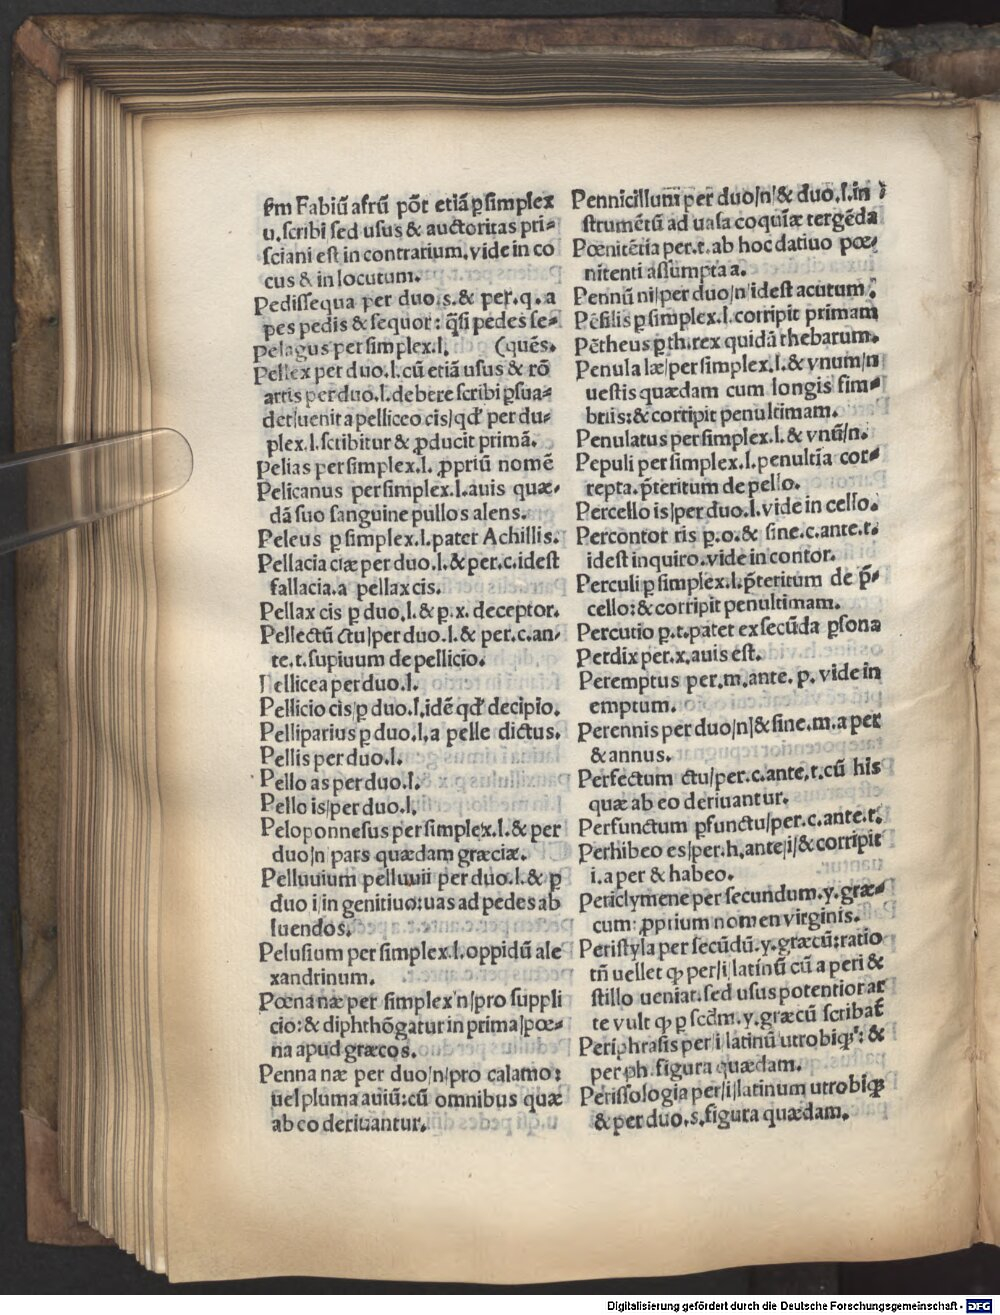 fm Fabiū afrū pōt etiā ꝑ simplex
u. scribi sed usus & auctoritas pri-
sciani est in contrarium. vide in co
cus & in locutum.
Pedissequa per duo. s. & per. q. a
pes pedis & sequor: q̄si pedes se-
Pelagus per simplex. l. (quēs.
Pellex per duo. l. cū etiā usus & rō
artis per duo. l. debere scribi ꝑsua-
det/uenit a pelliceo cis/qđ per du-
plex. l. scribitur & ꝓducit primā.
Pelias per simplex. l. ꝓpriū nomē
Pelicanus per simplex. l. auis quæ-
dā suo sanguine pullos alens.
Peleus ꝑ simplex. l. pater Achillis.
Pellacia ciæ per duo. l. & per. c. idest
fallacia. a pellax cis.
Pellax cis ꝑ duo. l. & ꝑ. x. deceptor.
Pellectū ctu/per duo. l. & per. c. an-
te. t. supiuum de pellicio.
Pellicea per duo. l.
Pellicio cis/ꝑ duo. l. idē qđ decipio.
Pelliparius ꝑ duo. l. a pelle dictus.
Pellis per duo. l.
Pello as per duo. l.
Pello is/per duo. l.
Peloponnesus per simplex. l. & per
duo/n pars quædam græciæ.
Pelluuium pelluuii per duo. l. & ꝑ
duo i/in genitiuo: uas ad pedes ab
luendos.
Pelusium per simplex. l. oppidū ale
xandrinum.
Pœna næ per simplex n/pro suppli
cio: & diphthōgatur in prima/pœ-
na apud græcos.
Penna næ per duo/n/pro calamo:
uel pluma auiū: cū omnibus quæ
ab eo deriuantur.
Pennicillum per duo/n/& duo. l. in
strumētū ad uasa coquīæ tergēda
Pœnitētia per. t. ab hoc datiuo pœ-
nitenti assumpta a.
Pennū ni/per duo/n/idest acutum.
Pēsilis ꝑ simplex. l. corripit primam
Pētheus ꝑ th. rex quidā thebarum.
Penula læ/per simplex. l. & vnum/n
uestis quædam cum longis fim-
briis: & corripit penultimam.
Penulatus per simplex. l. & vnū/n.
Pepuli per simplex. l. penultīa cor-
repta. p̄teritum de pello.
Percello is/per duo. l. vide in cello.
Percontor ris ꝑ. o. & sine. c. ante. t.
idest inquiro. vide in contor.
Perculi ꝑ simplex. l. p̄teritum de ꝑ-
cello: & corripit penultimam.
Percutio ꝑ. t. patet ex secūda ꝑsona
Perdix per. x. auis est.
Peremptus per. m. ante. p. vide in
emptum.
Perennis per duo/n/& sine. m. a per
& annus.
Perfectum ctu/per. c. ante. t. cū his
quæ ab eo deriuantur.
Perfunctum ꝑfunctu/per. c. ante. t.
Perhibeo es/per. h. ante/i/& corripit
i. a per & habeo.
Periclymene per secundum. y. græ-
cum: ꝓprium nomen virginis.
Peristyla per secūdū. y. græcū: ratio
tñ uellet ꝙ per/i/latinū cū a peri &
stillo ueniat. sed usus potentior ar
te vult ꝙ ꝑ scđm. y. græcū scribat̄
Periphrasis per i latinū utrobiqꝫ: &
per ph. figura quædam.
Perissologia per/i/latinum utrobiqꝫ
& per duo. s. figura quædam.
Digitalisierung gefördert durch die Deutsche Forschungsgemeinschaft - DFG